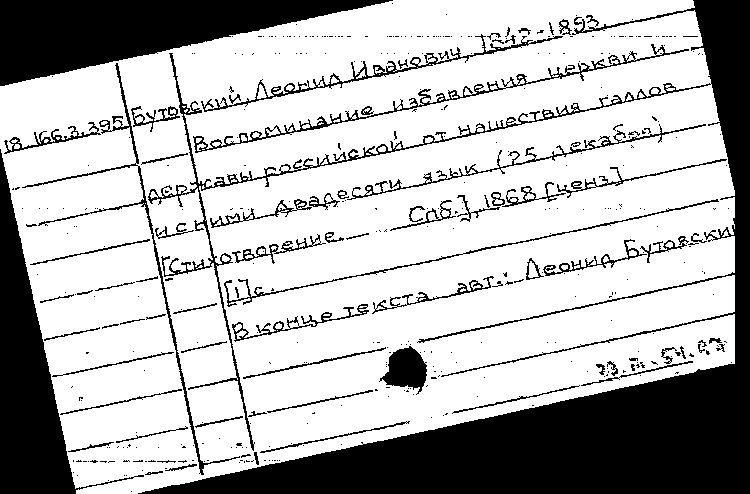 18.166.3.395 Бутовский, Леонид Иванович, 1842-1893.
Воспоминание избавления церкви и
державы российской от нашествия галлов
и с ними двадесяти язык (25 декабря)
[Стихотворение. Спб.], 1868 [ценз]
[1]с.
В конце текста авт.: Леонид Бутовский